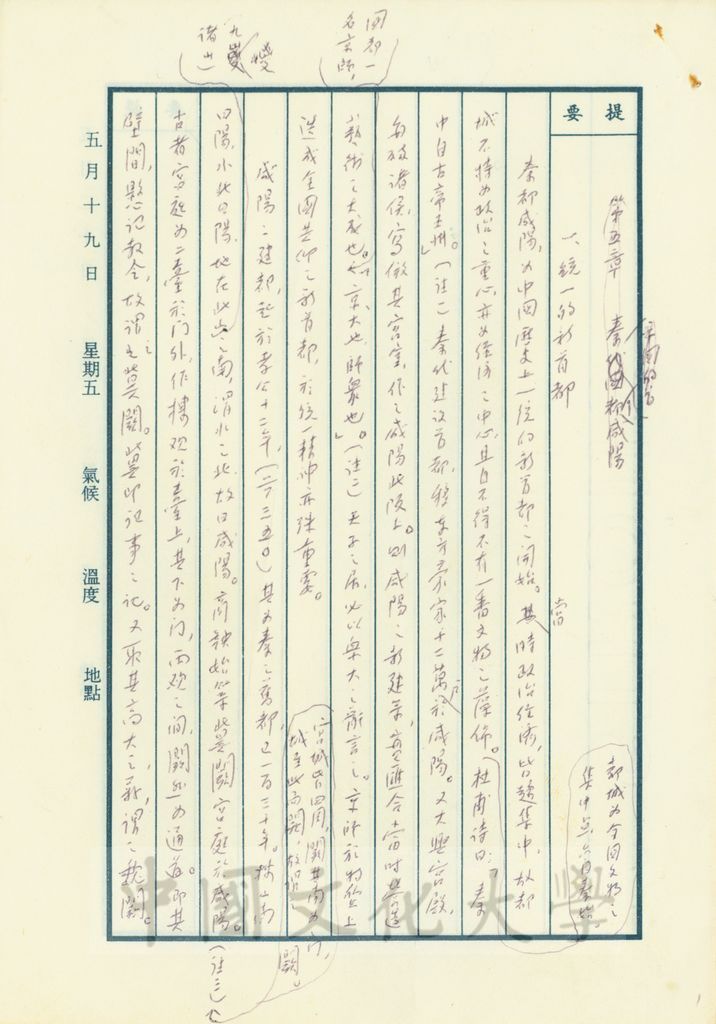 提要
第五章 秦代國都咸陽
一、統一的新首都
都城為全國文物之集中點,自秦始。
秦都咸陽,為中國歷史上一統的新首都之開始。當時政治經濟,皆趨集中,故都
城不特為政治之重心,亦為經濟之中心,且自不得不有一番文物之藻飾。杜甫詩曰:「秦
中自古帝王州。」(註一)秦代建設首都,移東方豪家十二萬戶於咸陽。又大興宮殿,
每破諸侯,寫倣其宮室,作之咸陽北阪上。則咸陽之新建築,實匯合當時
藝術之大成也。京大也,師眾也。」(註二)天子之居,必以眾大之辭言之。京師於物質上
國都一名京師,
造成全國景仰之新首都,於統一精神亦殊重要。
咸陽之建都,起於孝公十二年,(前三五〇)其為秦之舊都,已一百三十年。
九嵕諸山
曰陽,水北曰陽,地在此山之南,渭水之北,故曰咸陽。商鞅始築冀闕宮庭於咸陽。(註三)
宮城皆四周,闕其南為門,城至此而闕,故謂闕。
古者宮庭為二臺於門外,作樓觀於臺上,其下為門,兩觀之間,闕然為通道。即其
壁間,懸記教令,故謂之冀闕。冀即記事之記。又取其高大之義,謂之魏闕。
五月十九日 星期五 氣候 溫度 地點
中國文化大學